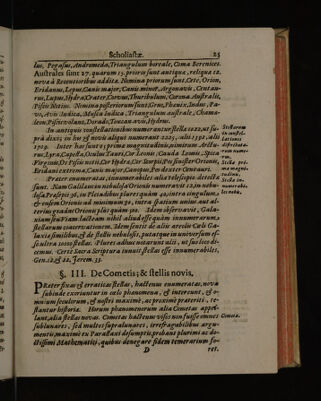 Scholiastæ. 25
lus, Pegasus, Andromeda, Triangulum boreale, Coma Berenices.
Australes sunt 27. quarum 15. priores sunt antiquæ, reliquæ 12.
novæ à Recentioribus additæ. Nomina priorum sunt, Cete, Orion,
Eridanus, Lepus, Canis major, Canis minor, Argonavis, Centau-
rus, Lupus, Hydra, Crater, Corvus, Thuribulum, Corona Australis,
Piscis Notius. Nomina posteriorum sunt, Grus, Phœnix, Indus, Pa-
vo, Avis Indica, Musca Indica, Triangulum australe, Chamæ-
leon, Piscis volans, Dorado, Toucan avis, Hydrus.
In antiquis constellationibus numerantur stellæ 1022, ut su-
prà dixi: in his & novis aliqui numerant 2225, alii 1392, alii
1709. Inter has sunt 15 primæ magnitudinis, nimirum Arctu-
rus, Lyra, Capella, Oculus Tauri, Cor Leonis, Cauda Leonis, Spica
Virginis, Os Piscis notii, Cor Hydræ, Cor Scorpii, Pes sinister Orionis,
Eridani extrema, Canis major, Canopus, Pes dexter Centauri.
Stellarum
numerus.
Stellæ
Præter enumeratas, innumerabiles aliæ telescopio detectæ
sunt. Nam Galilæus in nebulosa Orionis numeravit 12, in nebu-
losa Præsepis 36, in Pleiadibus plures quàm 40, intra cingulum,
& ensem Orionis ad minimum 80, intra spatium unius aut al-
terius gradus Orionis plus quàm 500. Idem observavit, Gala-
xiam seu Viam lacteam nihil aliud esse quàm innumerarum
stellarum coacervationem. Idem sensit de aliis areolis Cœli Ga-
laxiæ similibus, & de stellis nebulosis, putatque in universum es-
se ultra 10000 stellas. Plures adhuc notarunt alii, ut suis locis di-
cemus. Certè Sacra Scriptura innuit stellas esse innumerabiles,
Gen. 12. & 22. Jerem. 33.
§. III. De Cometis; & stellis novis,
Præter fixas & erraticas stellas, hactenus enumeratas, nova
subinde exoriuntur in cœlo phænomena, & interjcunt, & o-
mnium seculorum, & nostri maximè, ac proximè præteriti, te-
stantur historiæ. Horum phænomenorum alia Cometas appel-
lant, alia stellas novas. Cometas hactenus visos non fuisse omnes
Cometæ.
sublunares, sed multos supralunares, irrefragabilibus argu-
mentis maximè ex Parallaxi desumptis, probant plurimi ac do-
ctissimi Mathematici, quibus denegare fidem temerarium fo-
D ret.